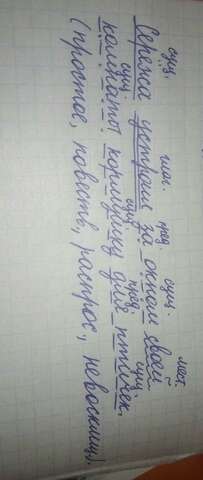 сущ. глаг. пред. сущ. мест.
Серёжа устроил за окном своей
сущ. сущ. пред. сущ.
комнаты кормушку для птичек.
(простое, повеств, распрос, невосклиц).